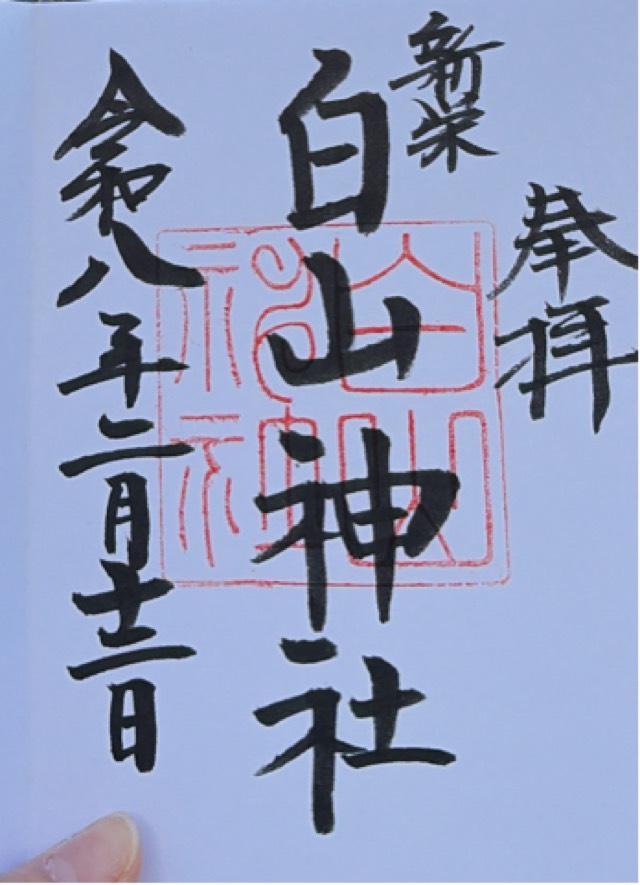 奉拝
新栄
白山神社
令和八年二月十二日
白山
神社